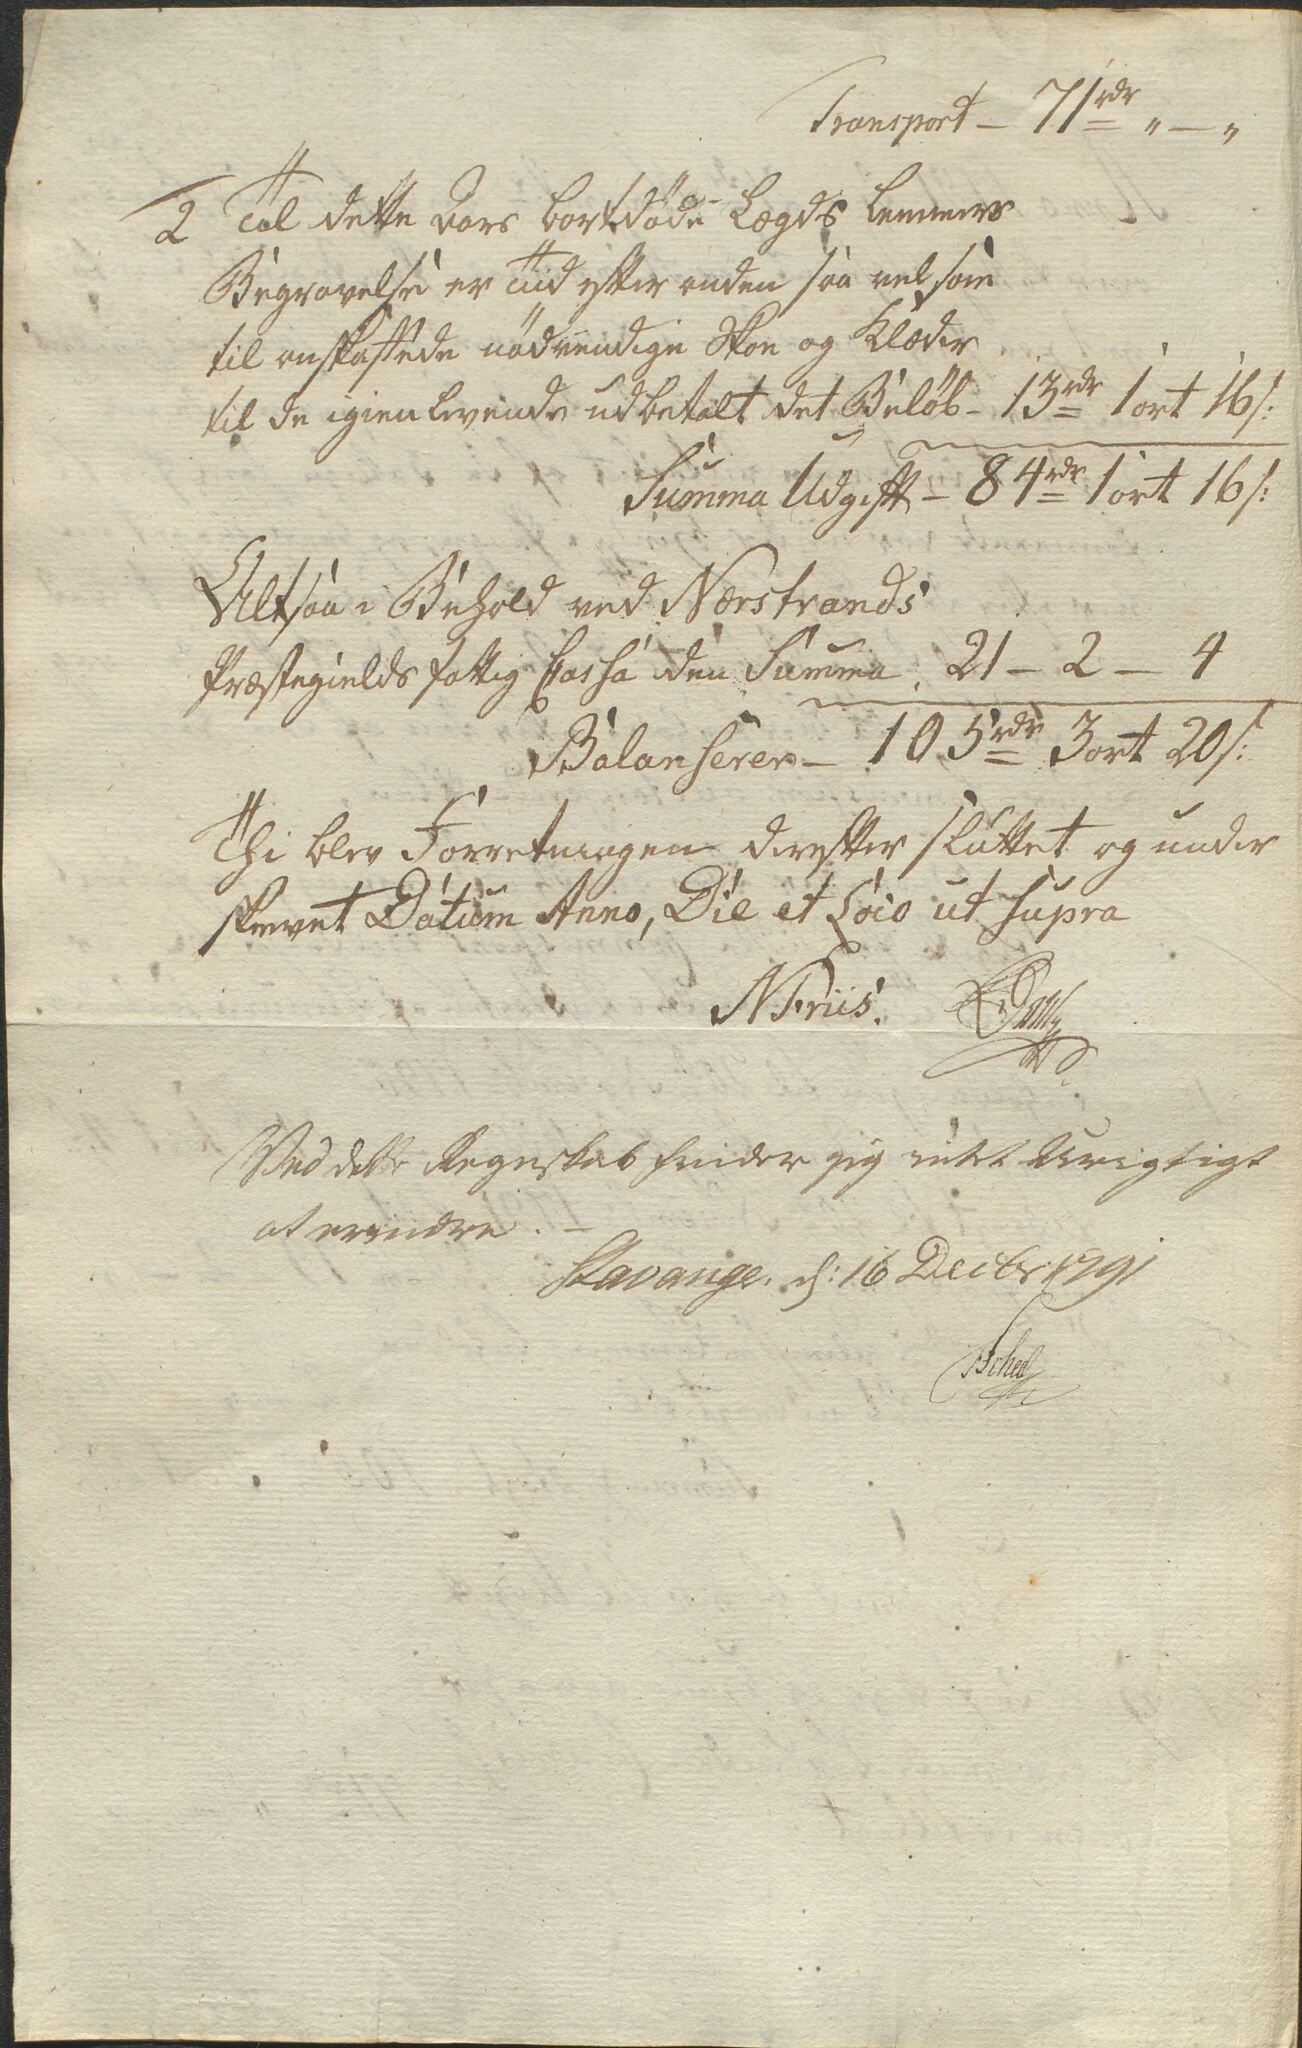 Transport – 71rdr „ – „
2 Til dette Aars bortdøde Lægds Lemmers
Begravelse er Tiid efter anden saa vel som
til anskaffede nødvendige Skoe og Klæder
til de igienlevende udbetalt det Beløb – 13rdr 1 ort 16/:
Summa Udgift – 84rdr 1 ort 16/:
Altsaa i Behold ved Nærstrands
Præstegields Fattig Cassa den Summa. 21 – 2 – 4
Balanserer – 105rdr 3 ort 20/:
Thi blev Forretningen derefter sluttet og under
skrevet Datum Anno, Die et Loco ut supra
N Friis.
Ved dette Regnskab finder jeg intet Urigtigt
at erindre. –
Stavanger d: 16 Decbr 1791
Scheel